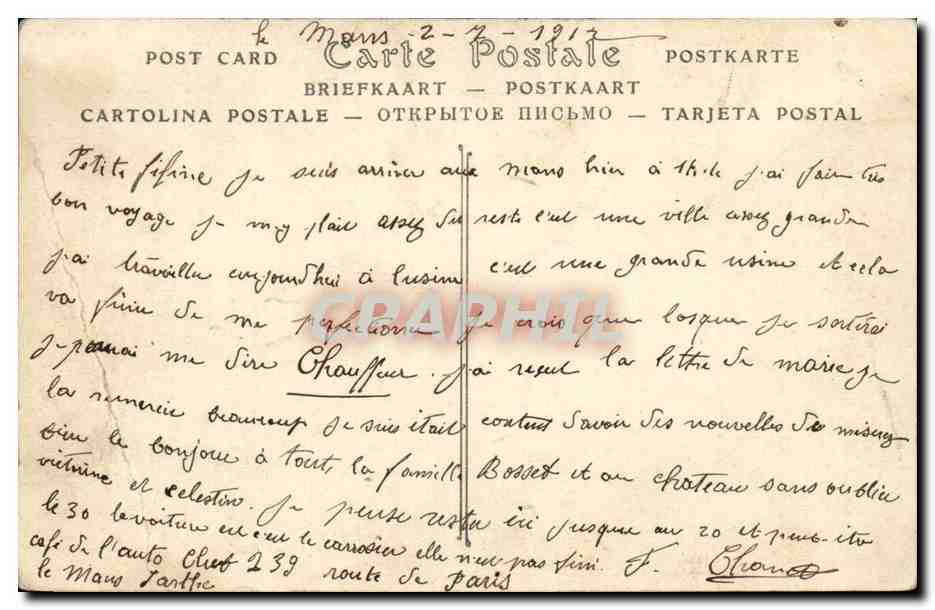 le Mans 2-7-1912
POST CARD Carte Postale POSTKARTE
BRIEFKAART — POSTKAART
CARTOLINA POSTALE — ОТКРЫТОЕ ПИСЬМО — TARJETA POSTAL
Petite fifine je suis arriver au mans hier à j'ai fait très
bon voyage je m'y plait assez du reste c'est une ville assez grande
j'ai travailler aujourdhui à lusine c'est une grande usine et cela
va finir de me perfectionner je crois que losque je sortirai
je pourrai me dire Chauffeur. j'ai reçut la lettre de marie je
la remercie beaucoup je suis était content davoir des nouvelles de
bien le bonjour à toute la famille Bosset et au chateau sans oublier
victorine et celestin. Je pense rester ici jusque au 20 et peut-être
le 30 la voiture est chez le carrosier elle n'est pas fini. F.
café de l'auto Club 239 route de Paris
le Mans Sarthe
CPAPHIL